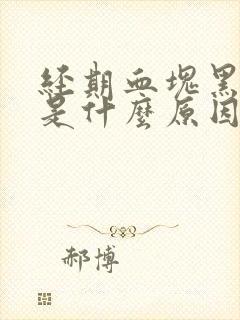 經期血塊黑
是什麼原因
郝博